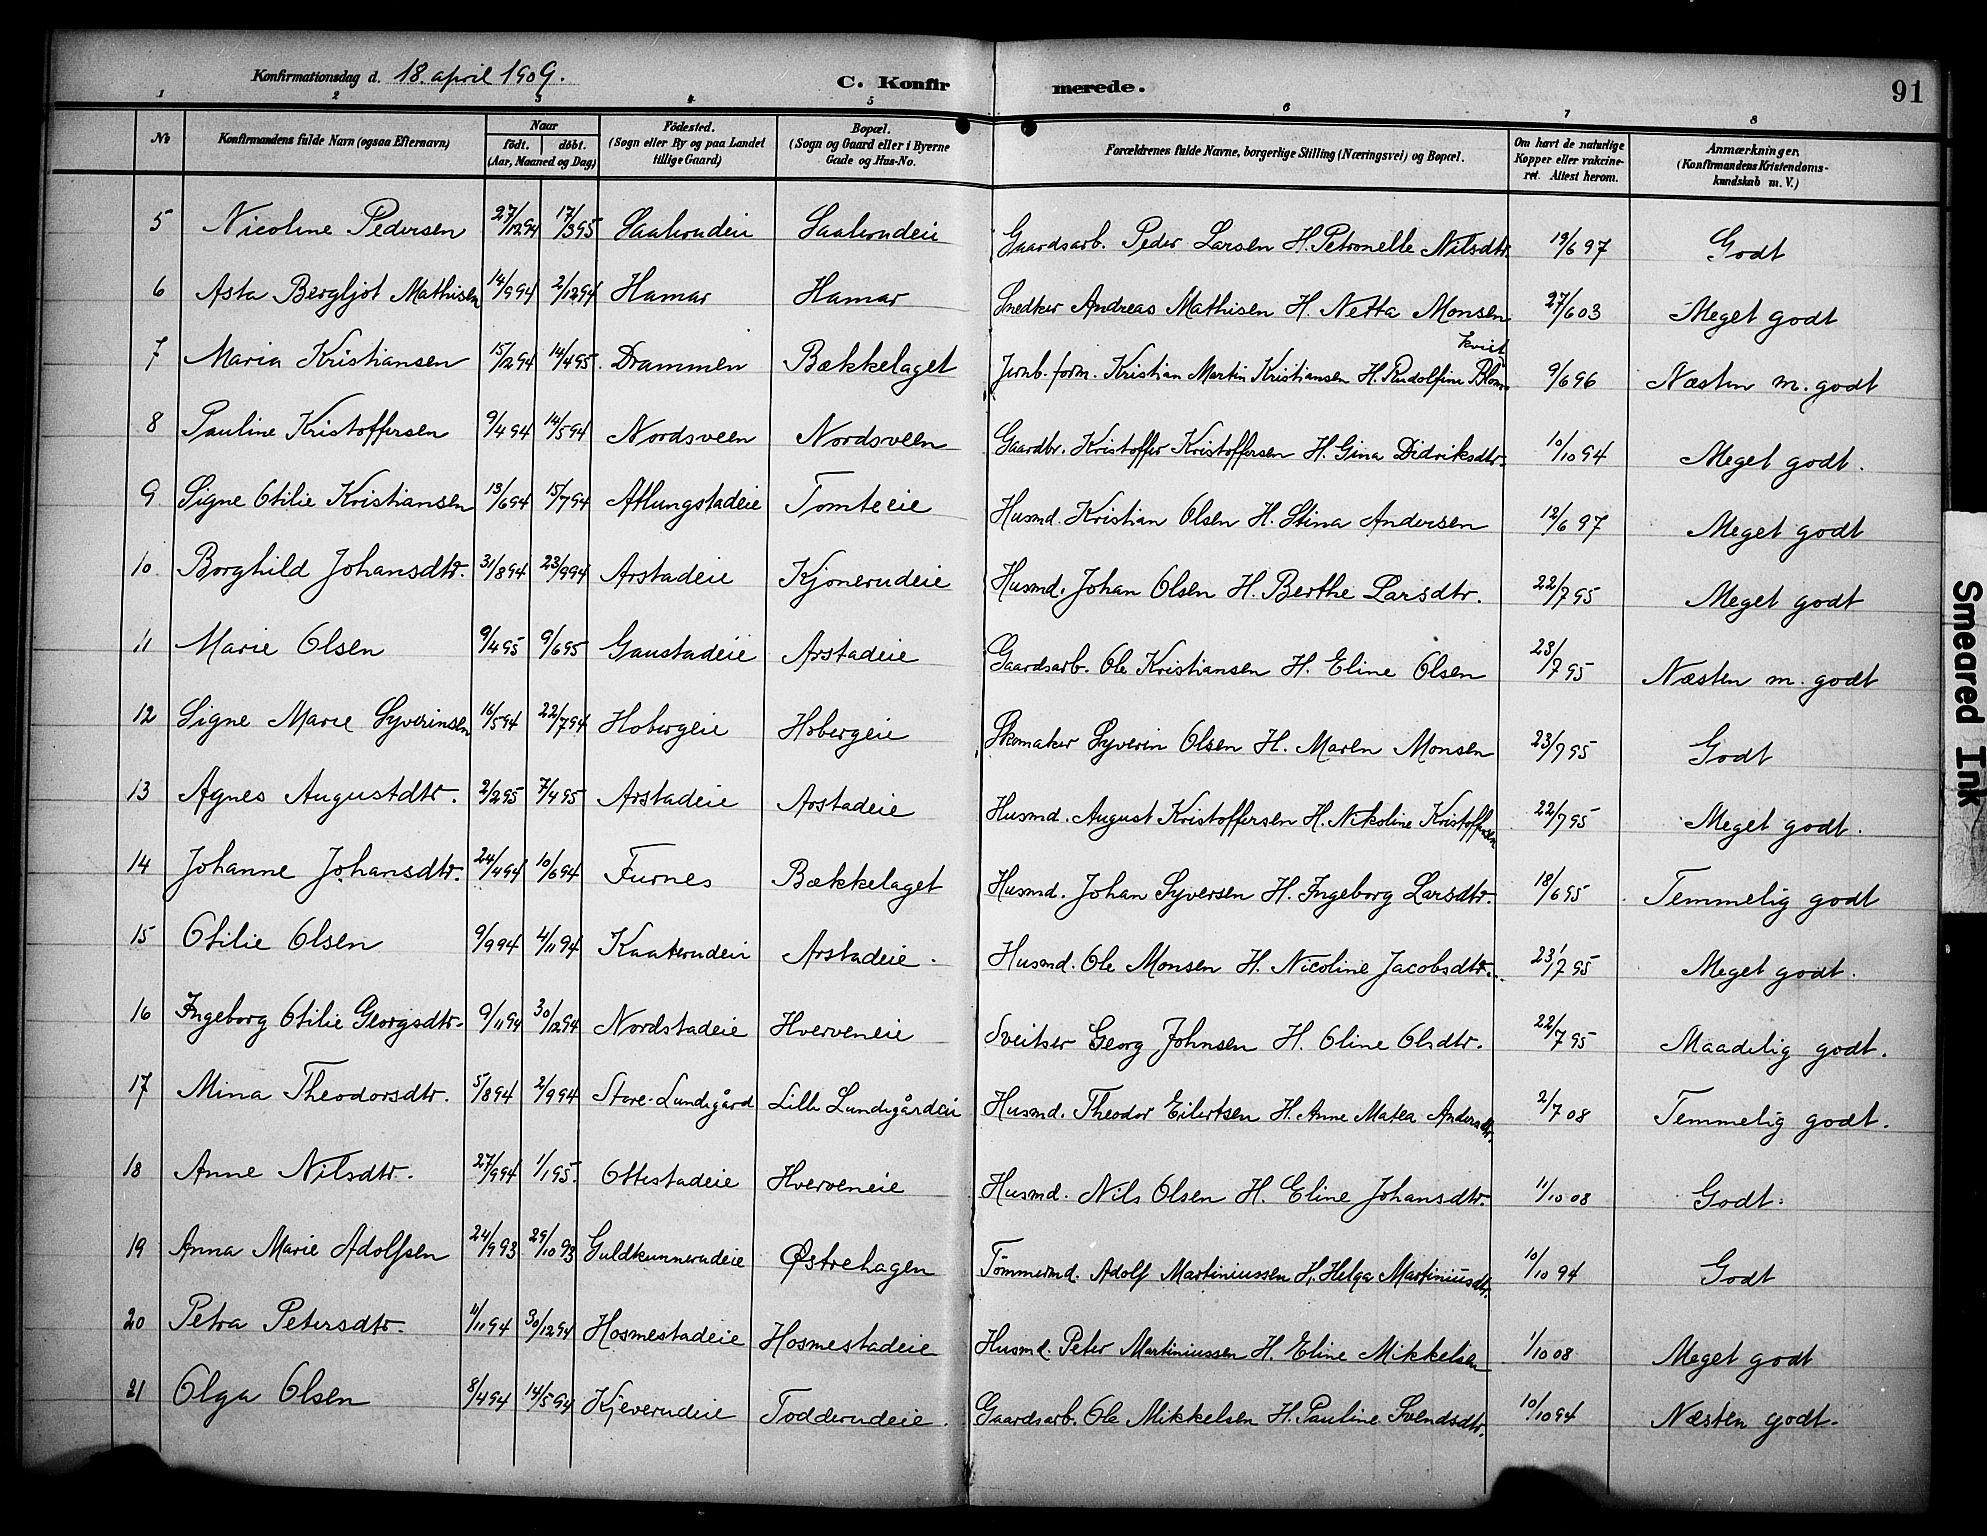 Konfirmationsdag d. 18. april 1909. C. Konfir merede. 91
1 2 3 4 5 6 7 8
№ Konfirmandens fulde Navn (ogsaa Efternavn) Naar født. døbt. (Aar, Maaned og Dag) Fødested. (Sogn eller By og paa Landet tillige Gaard) Bopæl. (Sogn og Gaard eller i Byerne Gade og Hus-No. Forældrenes fulde Navne, borgerlige Stilling (Næringsvei) og Bopæl. Om havt de naturlige Kopper eller vakcineret. Attest herom. Anmærkninger, (Konfirmandens Kristendomskundskab m. V.)
5 Nicoline Pedersen 27/12 94 17/3 95 Saaherudeie Saaherudeie Gaardsarb. Peder Larsen H. Petronelle Nilsdtr. 19/6 97 Godt
6 Asta Bergljot Mathisen 14/9 94 2/12 94 Hamar Hamar Snedker Andreas Mathisen H. Netta Monsen 27/6 03 Meget godt
7 Maria Kristiansen 15/2 94 14/4 95. Drammen Bækkelaget Jernb. form. Kristian Martin Kristiansen H. Rudolfine Blom kvist 9/6 96 Næsten m. godt
8 Pauline Kristoffersen 9/4 94 14/5 94 Nordsveen Nordsveen Gaardbr. Kristoffer Kristoffersen H. Gina Didriksdtr. 10/10 94 Meget godt.
9. Signe Otilie Kristiansen 13/6 94 15/7 94 Atlungstadeie Tomteeie Husmd. Kristian Olsen H. Stina Andersen 12/6 97 Meget godt
10. Borghild Johansdtr. 31/8 94 23/9 94 Arstadeie Kjonerudeie Husmd. Johan Olsen H. Berthe Larsdtr. 22/7 95 Meget godt
11 Marie Olsen 9/4 95 9/6 95 Gaustadeie Arstadeie Gaardsarb. Ole Kristiansen H. Eline Olsen 23/7 95 Næsten m. godt
12 Signe Marie Syverinsen 16/5 94 22/7 94 Hobergeie Hobergeie Skomaker Syverin Olsen H. Maren Monsen 23/7 95 Godt
13 Agnes Augustdtr. 2/2 95 7/4 95 Arstadeie Arstadeie Husmd. August Kristoffersen H. Nikoline Kristoffersen 22/7 95 Meget godt.
14 Johanne Johansdtr. 24/4 94 10/6 94 Furnes Bækkelaget Husmd. Johan Syversen H. Ingeborg Larsdtr. 18/6 95 Temmelig godt
15 Otilie Olsen 9/9 94 4/11 94 Kaaterudeie Arstadeie. Husmd. Ole Monsen H. Nicoline Jacobsdtr. 23/7 95 Meget godt.
16 Ingeborg Otilie Georgsdtr. 9/11 94 30/12 94 Nordstadeie Hverveneie Sveitser Georg Johnsen H. Oline Olsdtr. 22/7 95 Maadelig godt.
17 Mina Theodorsdtr. 5/8 94 2/9 94 Store-Lundsgård Lille Lundsgårdeie Husmd. Theodor Eilertsen H. Anne Matea Andersdtr. 2/7 08 Temmelig godt.
18 Anne Nilsdtr. 27/9 94 1/1 95. Ottestadeie Hverveneie Husmd. Nils Olsen H. Eline Johansdtr. 11/10 08 Godt.
19 Anna Marie Adolfsen 24/9 93 29/10 93 Guldkunnerudeie Østrehagen Tömmermd. Adolf Martiniussen H. Helga Martiniusdtr. 10/10 94 Godt
20 Petra Petersdtr. 11/11 94 30/12 94 Hosmestadeie Hosmestadeie Husmd. Peter Martiniussen H. Eline Mikkelsen 1/10 08 Meget godt
21 Olga Olsen 8/4 94 14/5 94 Kjeverudeie Todderudeie. Gaardsarb. Ole Mikkelsen H. Pauline Svendsdtr. 10/10 94 Næsten godt.
Smeared Ink